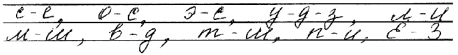 е-с, о-с, э-с, у-д-з, л-и
м-ш, в-д, т-ш, п-и, Е-З